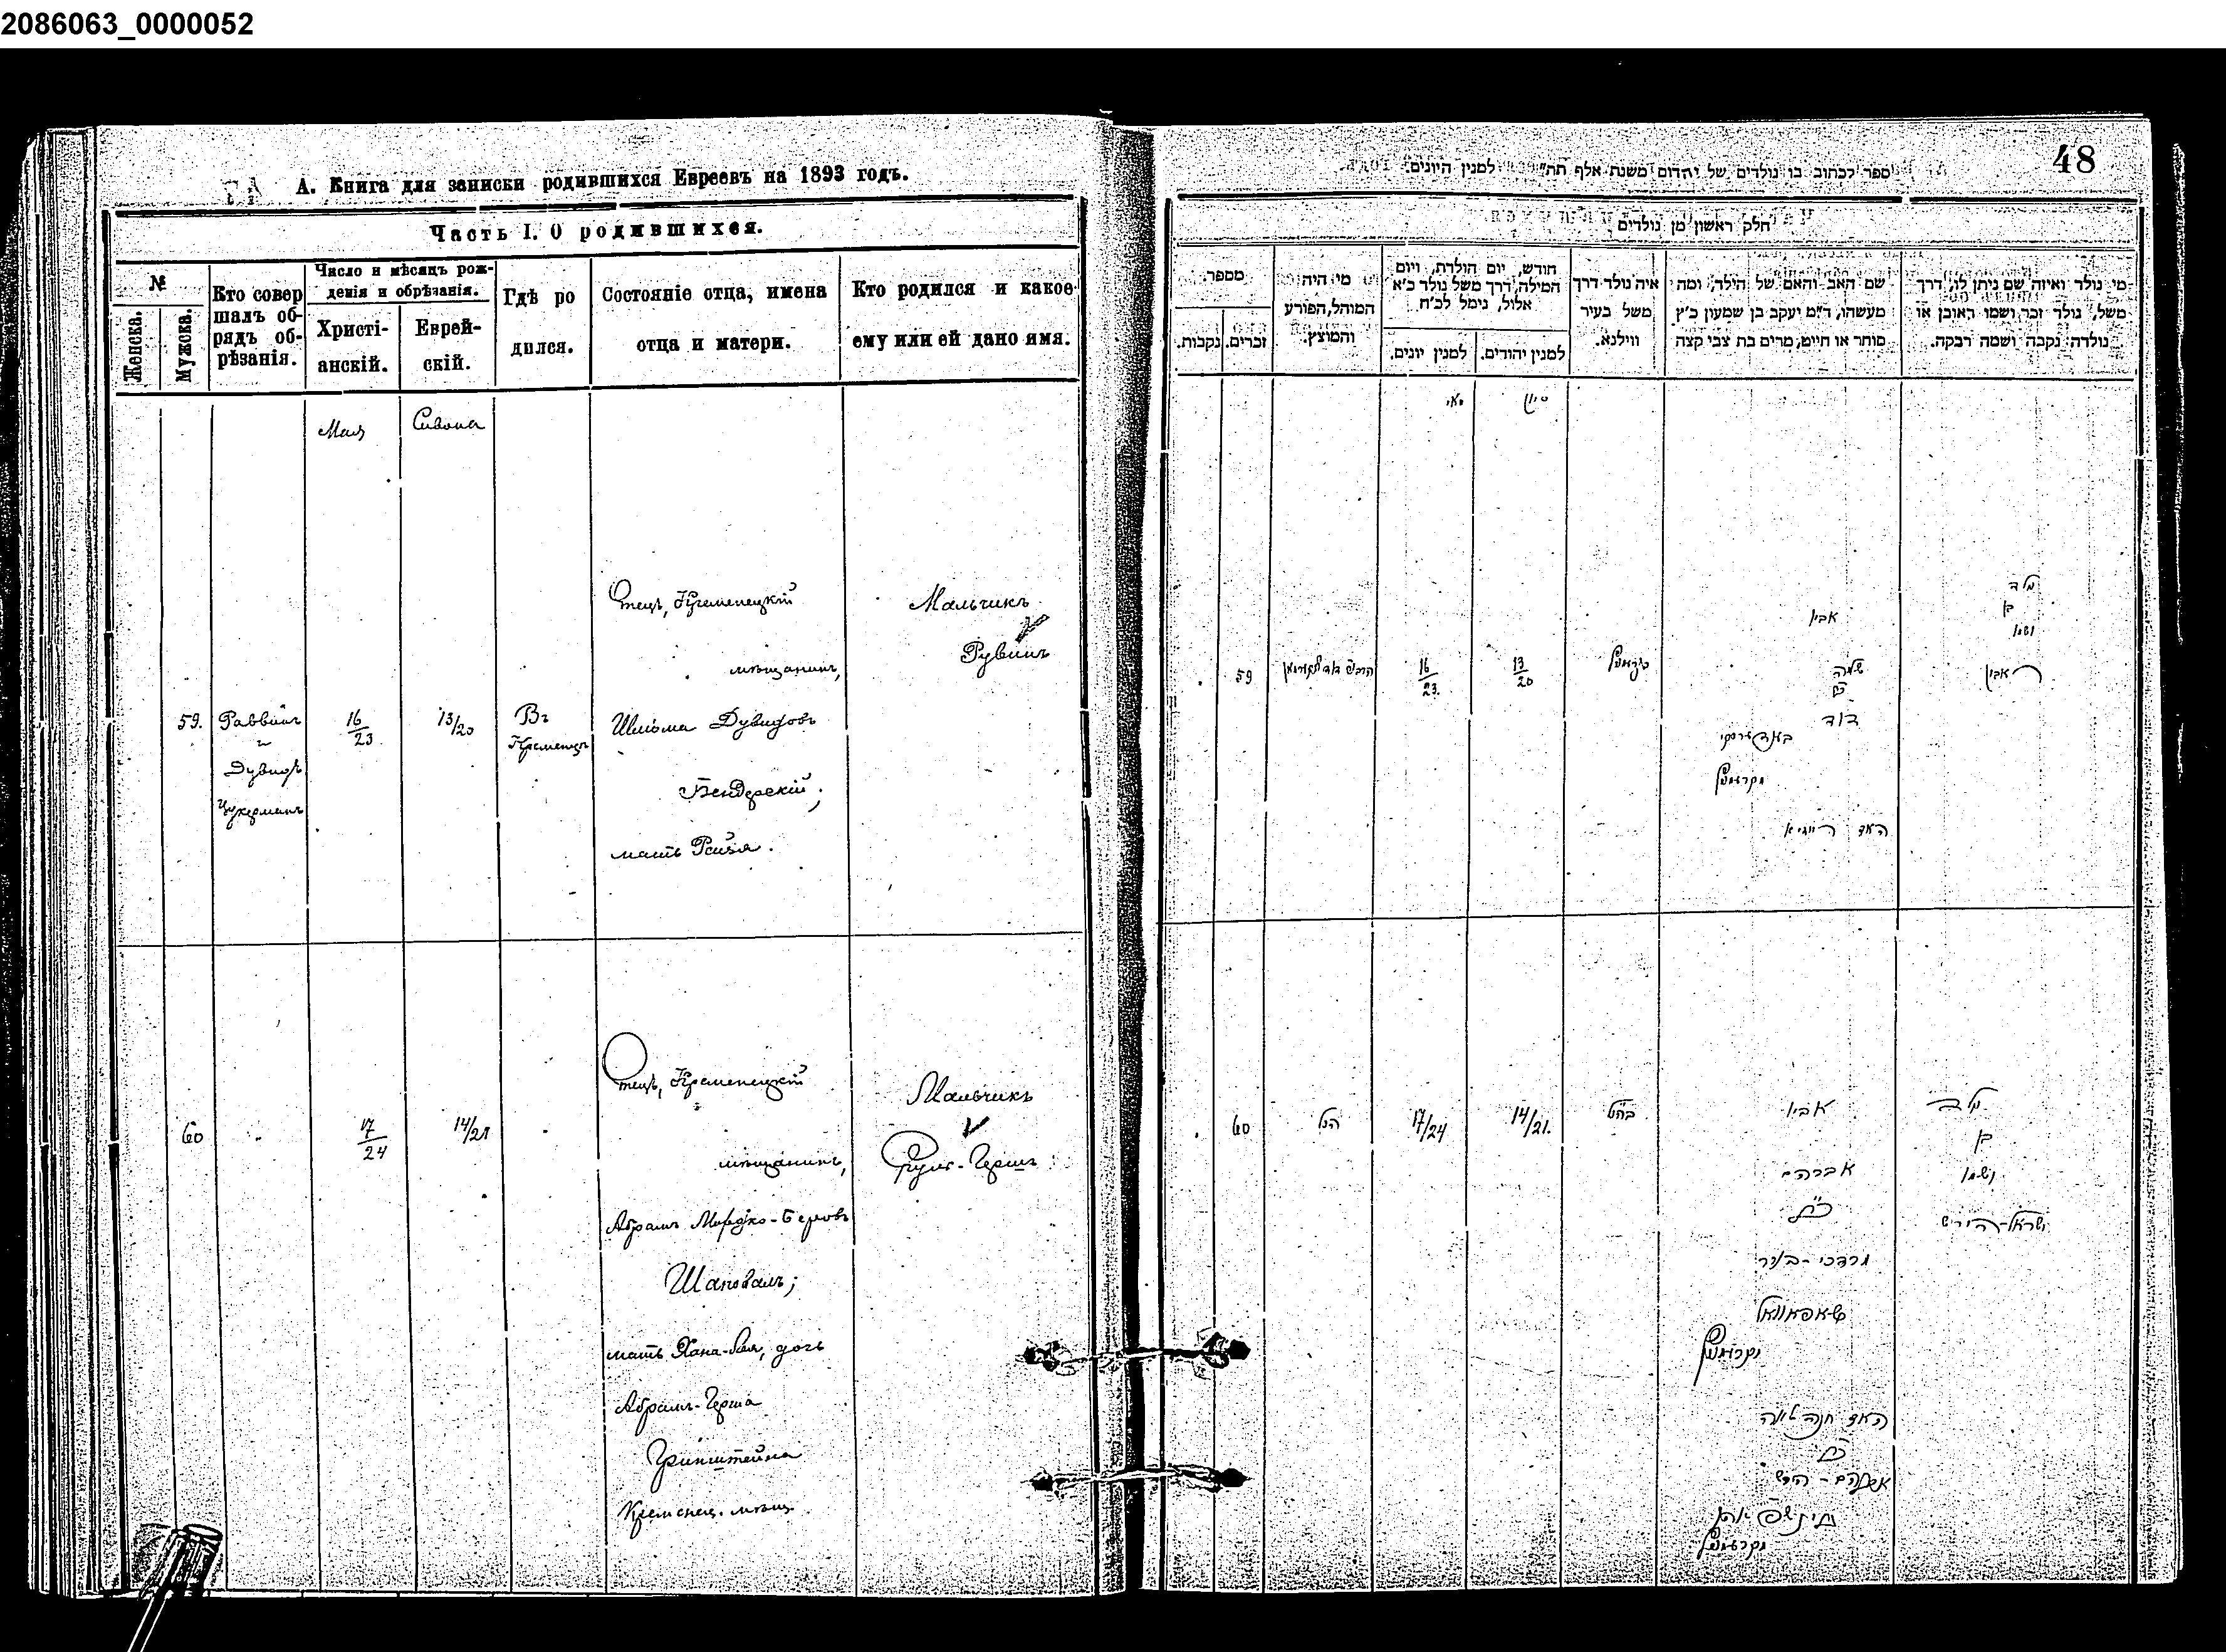 2086063_0000052
А. Книга для записки родившихся Евреевъ на 1893 годъ.
Часть I. О родившихся.
№
Женска.
Мужска.
Кто совер
шалъ об-
рядъ об-
рѣзанія.
Число и мѣсяцъ рож-
денія и обрѣзанія.
Христі-
анскій.
Еврей-
скій.
Гдѣ ро
дился.
Состояніе отца, имена
отца и матери.
Кто родился и какое
ему или ей дано имя.
Мая
Сивона
59.
Раввинъ
и
Дувидъ
Цукерманъ
16/23
13/20
Въ
Кременцѣ
Отецъ, Кременецкій
мѣщанинъ,
Шлиома Дувидовъ
Бендерскій;
мать Рейзя.
Мальчикъ
Рувинъ
60
17/24
14/21
Отецъ, Кременецкій
мѣщанинъ,
Абрамъ Мордко-Беровъ
Шаповалъ;
мать Хана-Лея, дочь
Абрамъ-Герша
Гринштейна
Кременец. мѣщ.
Мальчикъ
Сруль-Гершъ
48
ספר לכתוב בו נולדים של יהדום משנת אלף תת"
למנין היונים.
חלק ראשון מן נולדים
מספר.
נקבות.
זכרים.
מי היה
המוהל, הפורע
והמוצץ.
חודש, יום הולדת, ויום
המילה, דרך משל נולד כ'א
אלול, נימל לכ'ח
למנין יונים.
למנין יהודים.
איה נולד דרך
משל בעיר
ווילנא.
שם האב והאם של הילד, ומה
מעשהו, ד"מ יעקב בן שמעון כ'ץ
סוחר או חייט, מרים בת צבי קצה
מי נולד ואיזה שם ניתן לו, דרך
משל, נולד זכר ושמו ראובן או
נולדה נקבה ושמה רבקה.
מאי
סיון
59
16/23
13/20
קרעמניץ
אביו
שלמה
ב"ר
דוד
בענדערסקי
מקרעמניץ
האם רייזיא
נולד
בן
ושמו
ראובן
60
הנ"ל
17/24
14/21.
כנ"ל
אביו
אברהם
ב"ר
מרדכי-בער
שאפאוואל
מקרעמניץ
האם חנה לאה
ב"ר
אברהם-הירש
גרינשטיין
מקרעמניץ
נולד
בן
ושמו
ישראל-הירש